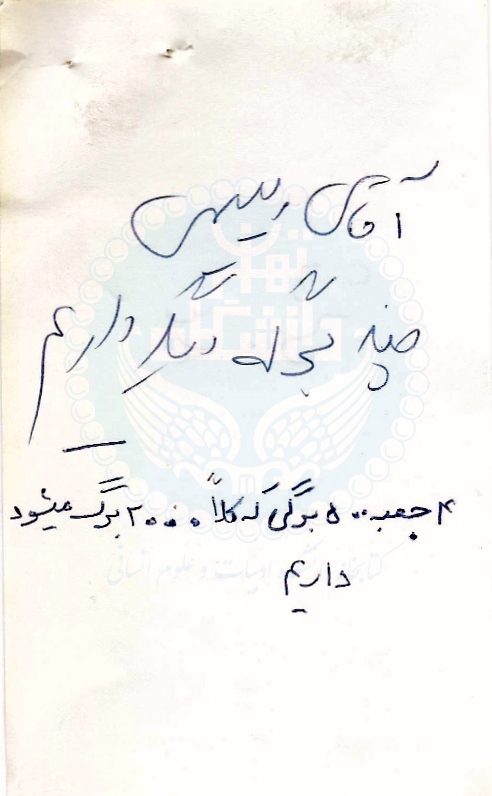 آقای رئیسی
چند بُرگه دیگر داریم
۴ جعبه ۵۰۰ برگی که کلاً ۲۰۰۰ برگ میشود
داریم
دانشگاه تهران
کتابخانه دانشکده ادبیات و علوم انسانی